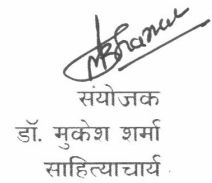 संयोजक
डॉ. मुकेश शर्मा
साहित्याचार्य